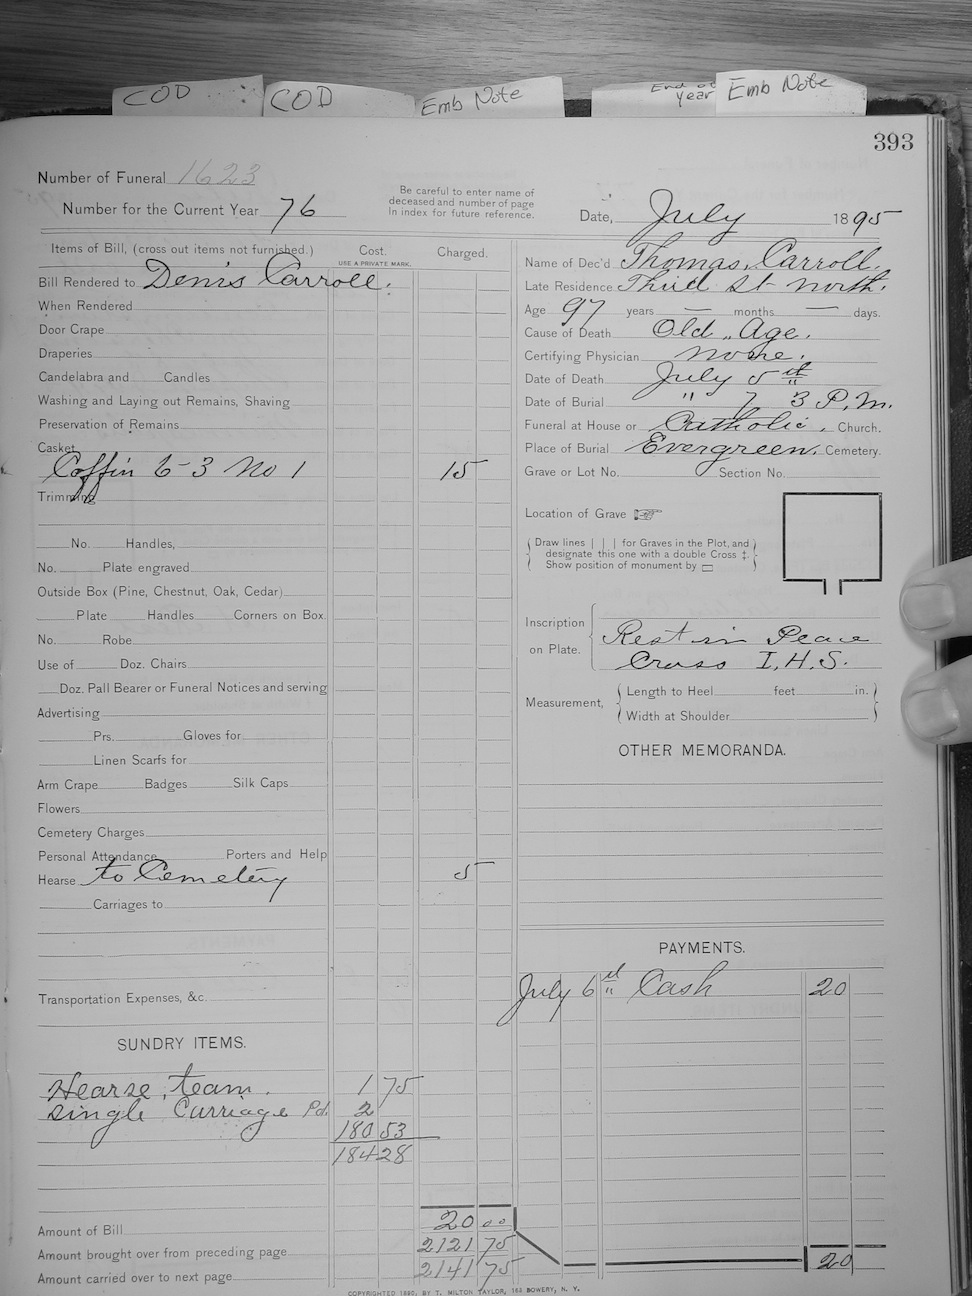 COD
COD
Emb Note
End of
year
Emb Note
393
Number of Funeral 1623
Number for the Current Year 76
Be careful to enter name of
deceased and number of page
In index for future reference.
Date, July 1895
Items of Bill, (cross out items not furnished.) Cost. Charged.
USE A PRIVATE MARK.
Bill Rendered to Denis Carroll.
When Rendered
Door Crape
Draperies
Candelabra and Candles
Washing and Laying out Remains, Shaving
Preservation of Remains
Casket
Coffin 6-3 No 1 15
Trimming
No. Handles,
No. Plate engraved
Outside Box (Pine, Chestnut, Oak, Cedar)
Plate Handles Corners on Box.
No. Robe
Use of Doz. Chairs
Doz. Pall Bearer or Funeral Notices and serving
Advertising
Prs. Gloves for
Linen Scarfs for
Arm Crape Badges Silk Caps
Flowers
Cemetery Charges
Personal Attendance Porters and Help
Hearse to Cemetery 5
Carriages to
Transportation Expenses, &c.
SUNDRY ITEMS.
Hearse, team. 1 75
Single Carriage Pd. 2
180 53
184 28
Amount of Bill 20 00
Amount brought over from preceding page 2121 75
Amount carried over to next page 2141 75
Name of Dec'd Thomas, Carroll.
Late Residence Third St North.
Age 97 years — months — days.
Cause of Death Old Age.
Certifying Physician None.
Date of Death July 5th
Date of Burial " 7 3 P.M.
Funeral at House or Catholic. Church.
Place of Burial Evergreen. Cemetery.
Grave or Lot No. Section No.
Location of Grave
Draw lines | | | for Graves in the Plot, and
designate this one with a double Cross ‡.
Show position of monument by ▭
Inscription
on Plate.
Rest in Peace
Cross I.H.S.
Measurement,
Length to Heel feet in.
Width at Shoulder
OTHER MEMORANDA.
PAYMENTS.
July 6th Cash 20
20
COPYRIGHTED 1890, BY T. MILTON TAYLOR, 163 BOWERY, N. Y.